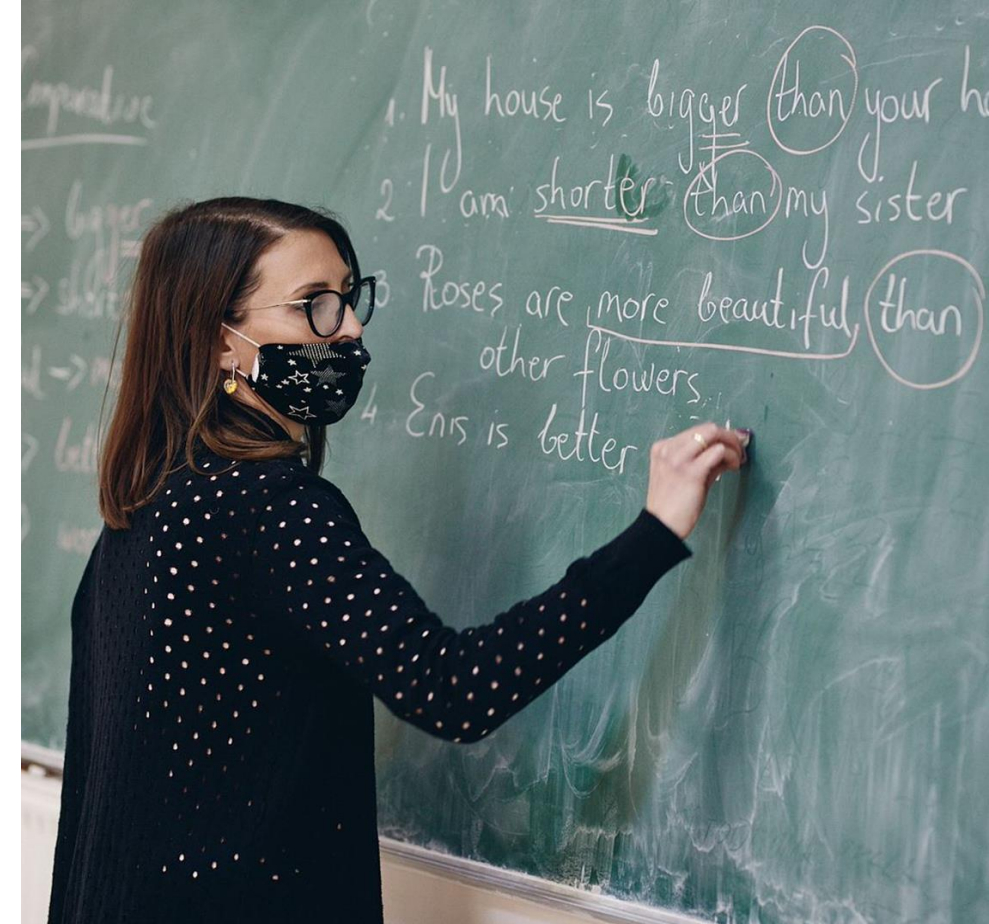 bigger
1. My house is bigger than your
2 I am shorter than my sister
3 Roses are more beautiful, than
other flowers
4. Enis is better